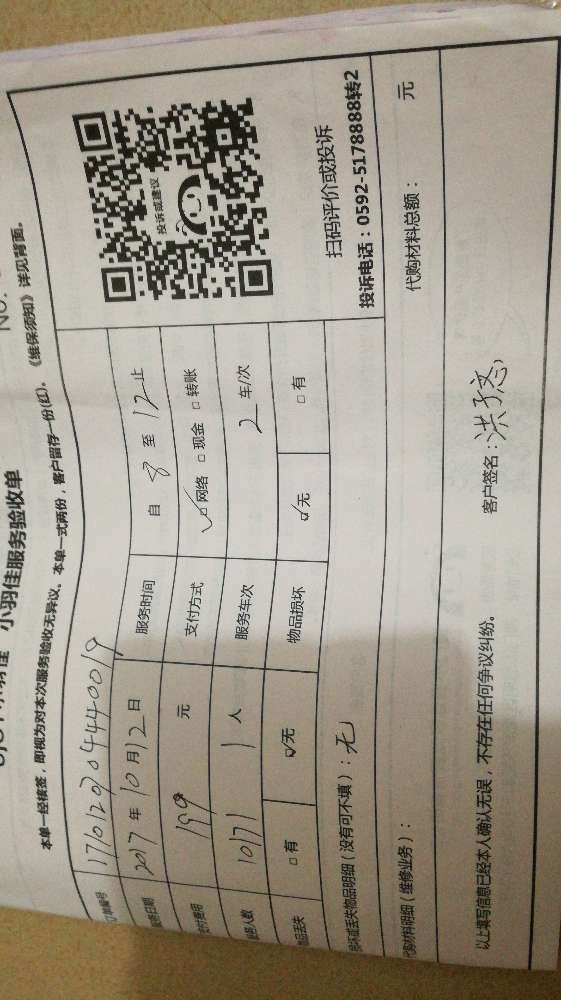 小羽佳服务验收单
NO.
本单一经核签，即视为对本次服务验收无异议。本单一式两份，客户留存一份(红)。《维保须知》详见背面。
订单编号 17101207044440019
服务日期 2017 年 10 月 12 日 服务时间 自 8 至 12 止
支付费用 199 元 支付方式 ☑ 网络 □ 现金 □ 转账
服务人数 1 人 服务车次 2 车/次
物品丢失 □ 有 ☑ 无 物品损坏 ☑ 无 □ 有
投诉或建议
扫码评价或投诉
投诉电话：0592-5178888转2
损坏或丢失物品明细（没有可不填）：无
代购材料明细（维修业务）： 代购材料总额： 元
以上填写信息已经本人确认无误，不存在任何争议纠纷。 客户签名：洪